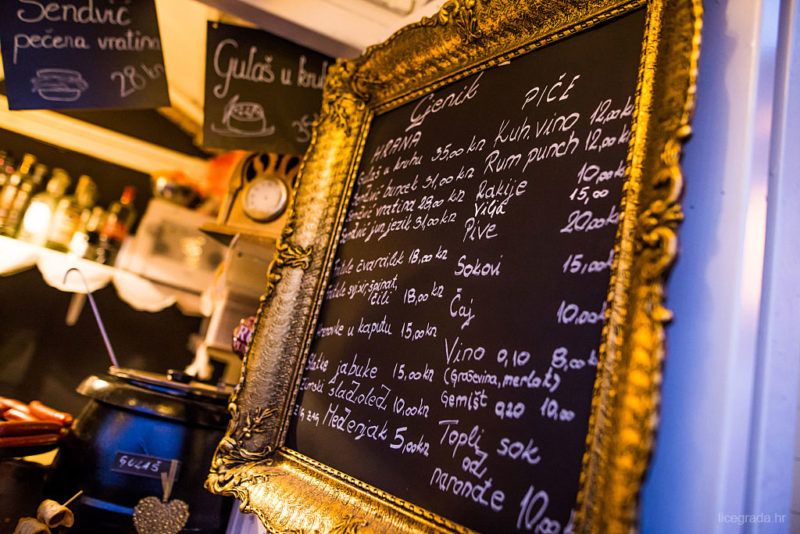 Sendvič
pečena vratina
28 kn
Gulaš u
Cjenik
HRANA
u kruhu 35,00 kn
buncek 31,00 kn
vratina 28,00 kn
jun. jezik 31,00 kn
čvarcilek 18,00 kn
sir, špinat,
čili 18,00 kn
u kaputu 15,00 kn
jabuke 15,00 kn
zimski sladoled 10,00 kn
Medenjak 5,00 kn
PIĆE
Kuh. vino 12,00 kn
Rum punch 12,00 kn
Rakije 10,00 kn
Vilja 15,00
Pive 20,00 kn
Sokovi 15,00 kn
Čaj 10,00 kn
Vino 0,10 8,00 kn
(Graševina, merlot)
Gemišt 0,20 10,00
Topli sok
od
naranače 10,00
GULAŠ
licegrada.hr